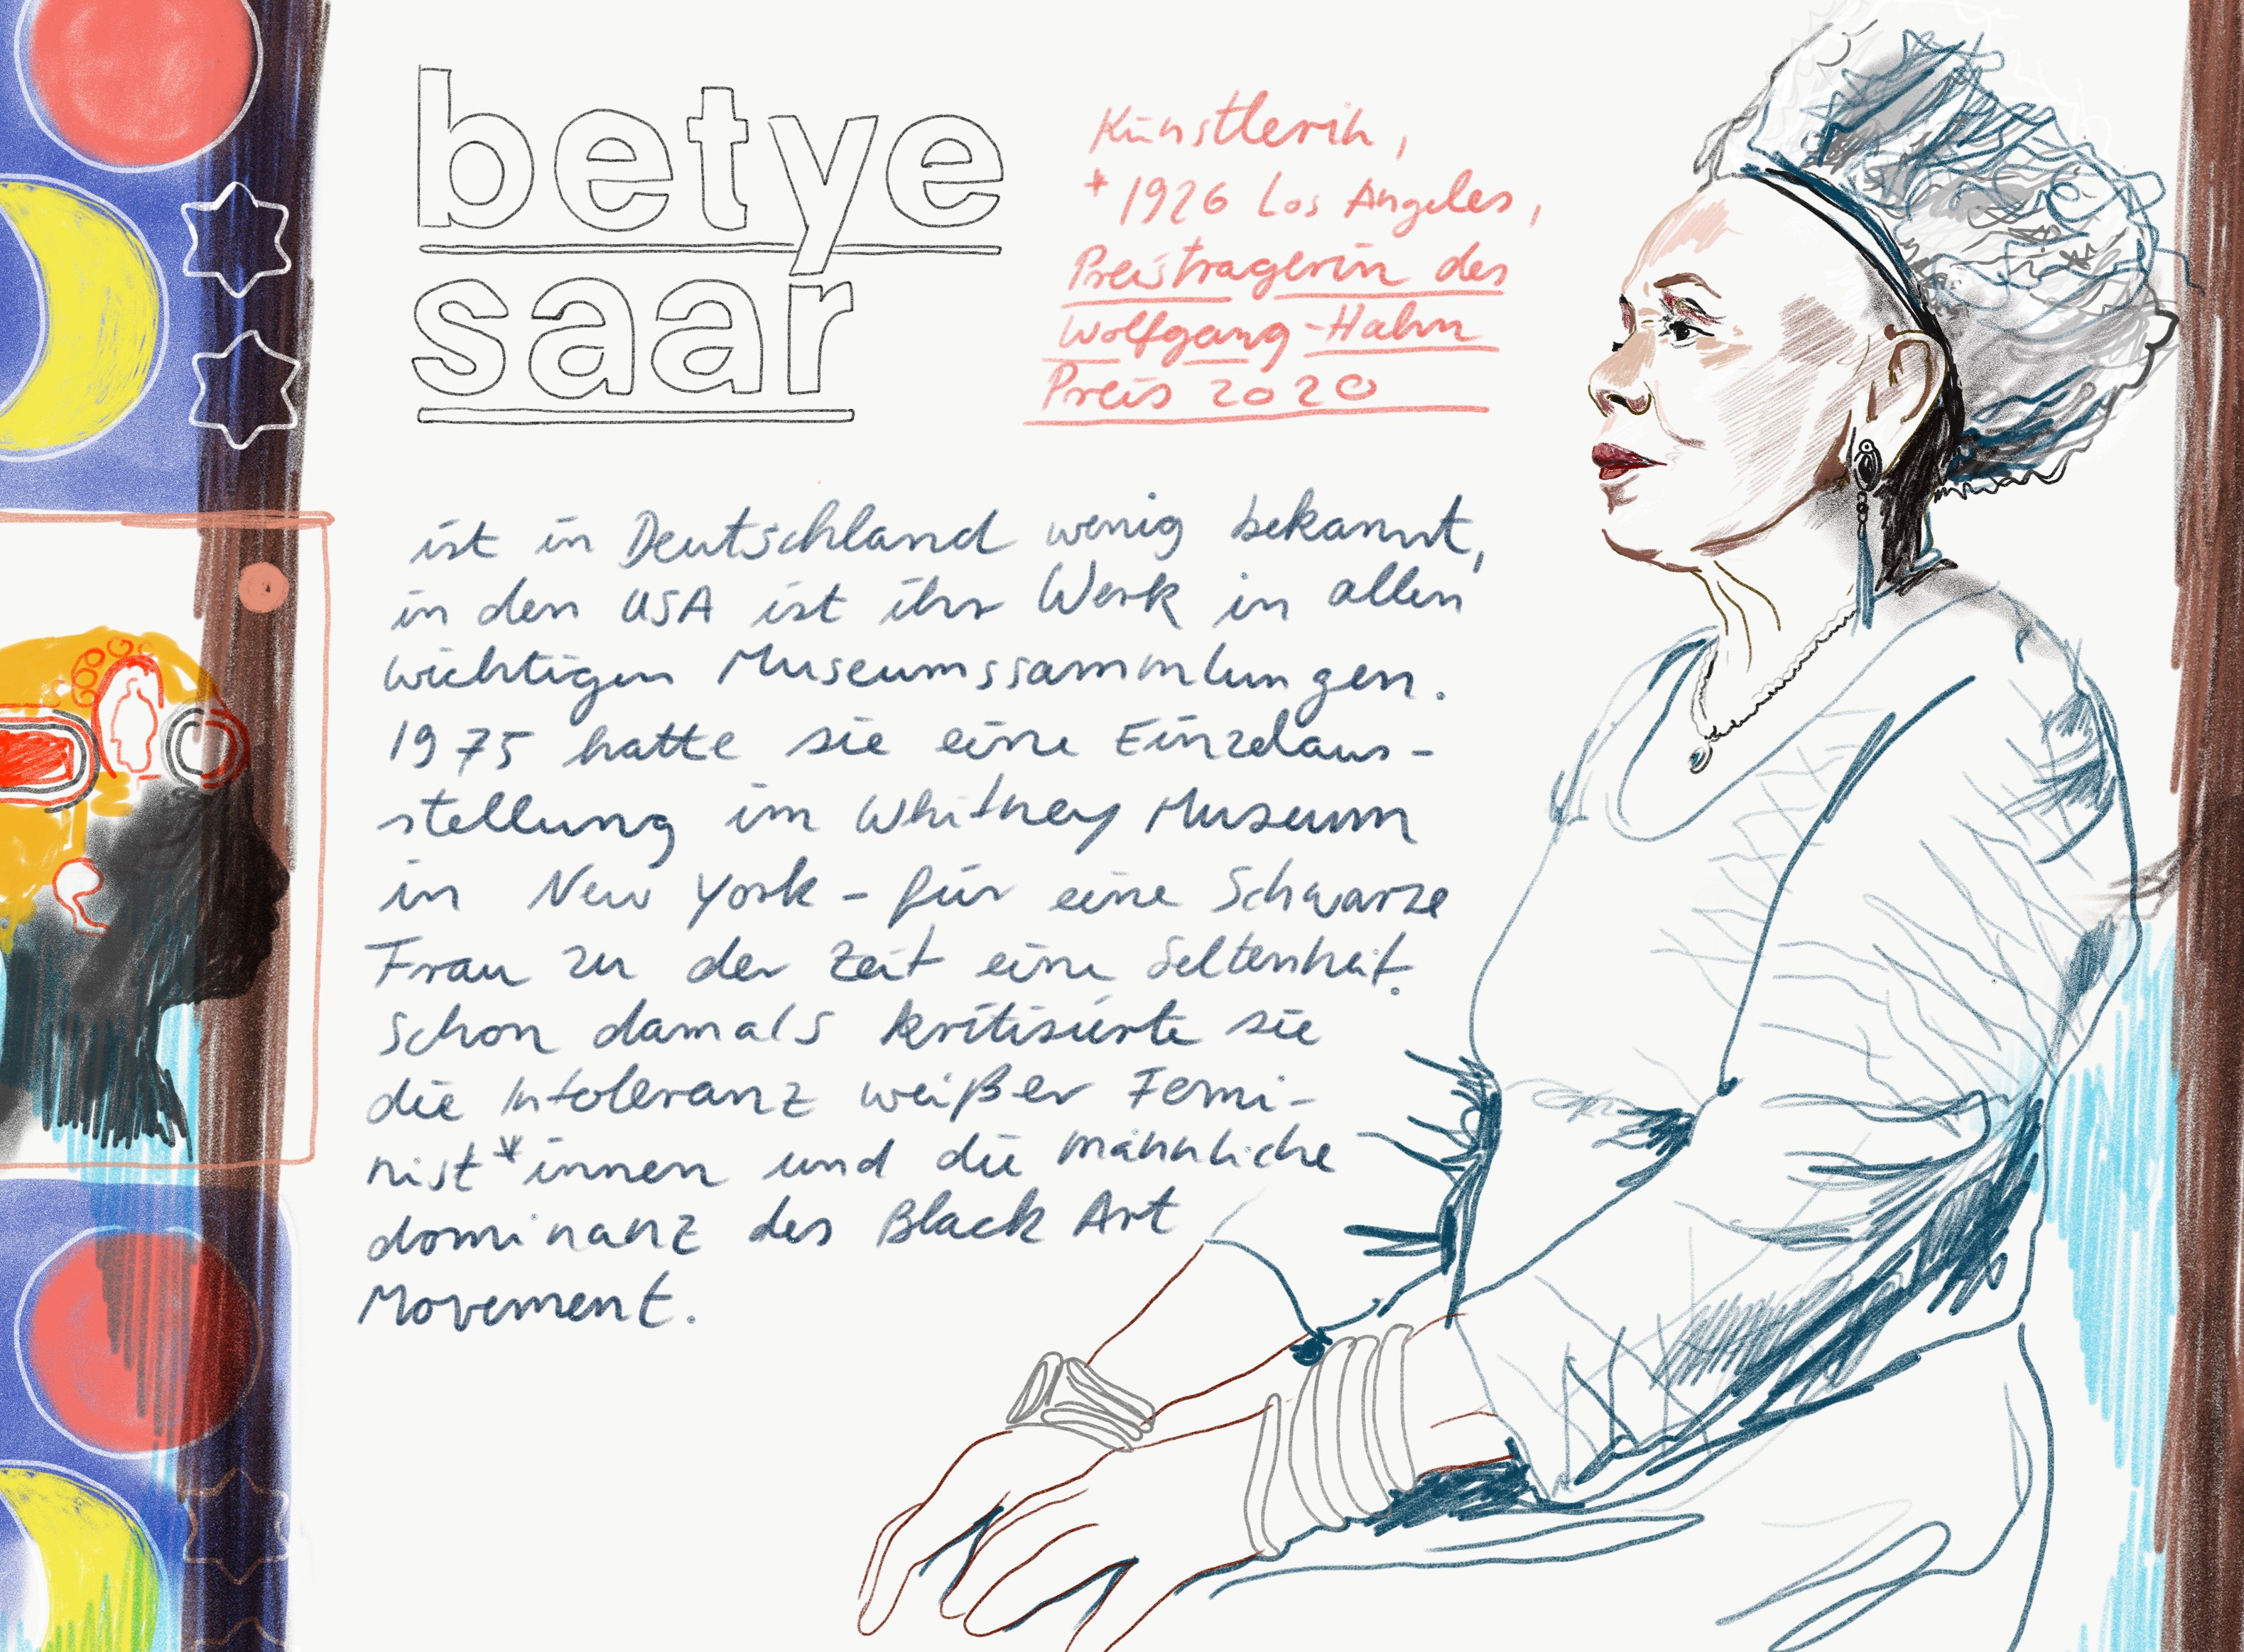 betye
saar
Künstlerin,
*1926 Los Angeles,
Preisträgerin des
Wolfgang-Hahn
Preis 2020
ist in Deutschland wenig bekannt,
in den USA ist ihr Werk in allen
wichtigen Museumssammlungen.
1975 hatte sie eine Einzelaus-
stellung im Whitney Museum
in New York - für eine Schwarze
Frau zu der Zeit eine Seltenheit.
Schon damals kritisierte sie
die Intoleranz weißer Femi-
nist*innen und die männliche
dominanz des Black Art
Movement.